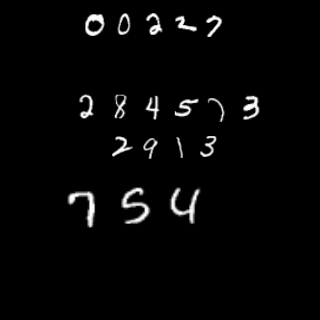 0 0 2 2 7
2 8 4 5 7 3
2 9 1 3
7 5 4